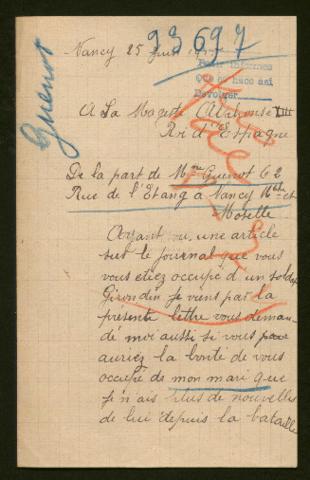 93697
Nancy 25 Juin
Pedir informes
Que se hace así
Devolver
Guenot
A Sa Majesté Alphonse XIII
Roi d'Espagne
De la part de Mme Guenot C 2
Rue de l'Etang à Nancy Mthe et
Moselle
Ayant vu, une article
sur le journal que vous
vous etiez occupé d'un soldat
Girondin je viens par la
présente lettre vous deman-
dé moi aussi si vous
auriez la bonté de vous
occupé de mon mari que
je n'ais plus de nouvelles
de lui depuis la bataille